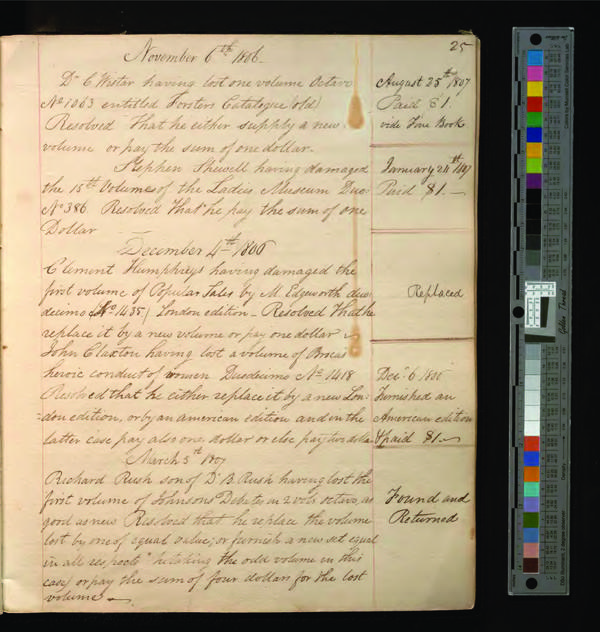 25
November 6th 1806.
Dr C Wistar having lost one volume Octavo
No 1063 entitled Forsters Catalogue (old)
Resolved That he either supply a new
volume or pay the sum of one dollar.
August 25th 1807
Paid $1.
vide Fine Book
Stephen Shewell having damaged
the 15th Volume of the Ladies Museum Duo
No 386. Resolved that he pay the sum of one
Dollar
January 24th 1807
Paid $1.
December 4th 1806
Clement Humphreys having damaged the
first volume of Popular Tales by M. Edgeworth duo
decimo (No 1435) London edition - Resolved that he
replace it by a new volume or pay one dollar
Replaced
John Claxton having lost a volume of
heroic conduct of women Duodecimo No 1418
Resolved that he either replace it by a new Lon-
=don edition, or by an american edition and in the
latter case pay also one dollar or else pay two dolls
Dec. 6 1806
Furnished an
American edition
& paid $1.
March 5th 1807
Richard Rush son of Dr B. Rush having lost the
first volume of Johnsons Debates in 2 vols. octavo, as
good as new Resolved that he replace the volume
lost by one of equal value, or furnish a new set equal
in all respects (he taking the odd volume in this
case) or pay the sum of four dollars for the lost
volume
Found and
Returned